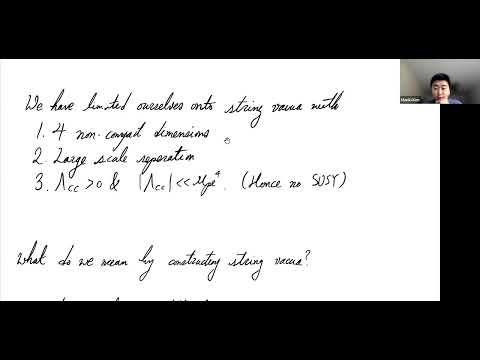 We have limited ourselves onto string vacua with
1. 4 non-compact dimensions
2. Large scale separation
3. Λcc > 0 & |Λcc| << Mpl⁴. (Hence no SUSY)
What do we mean by constructing string vacua?